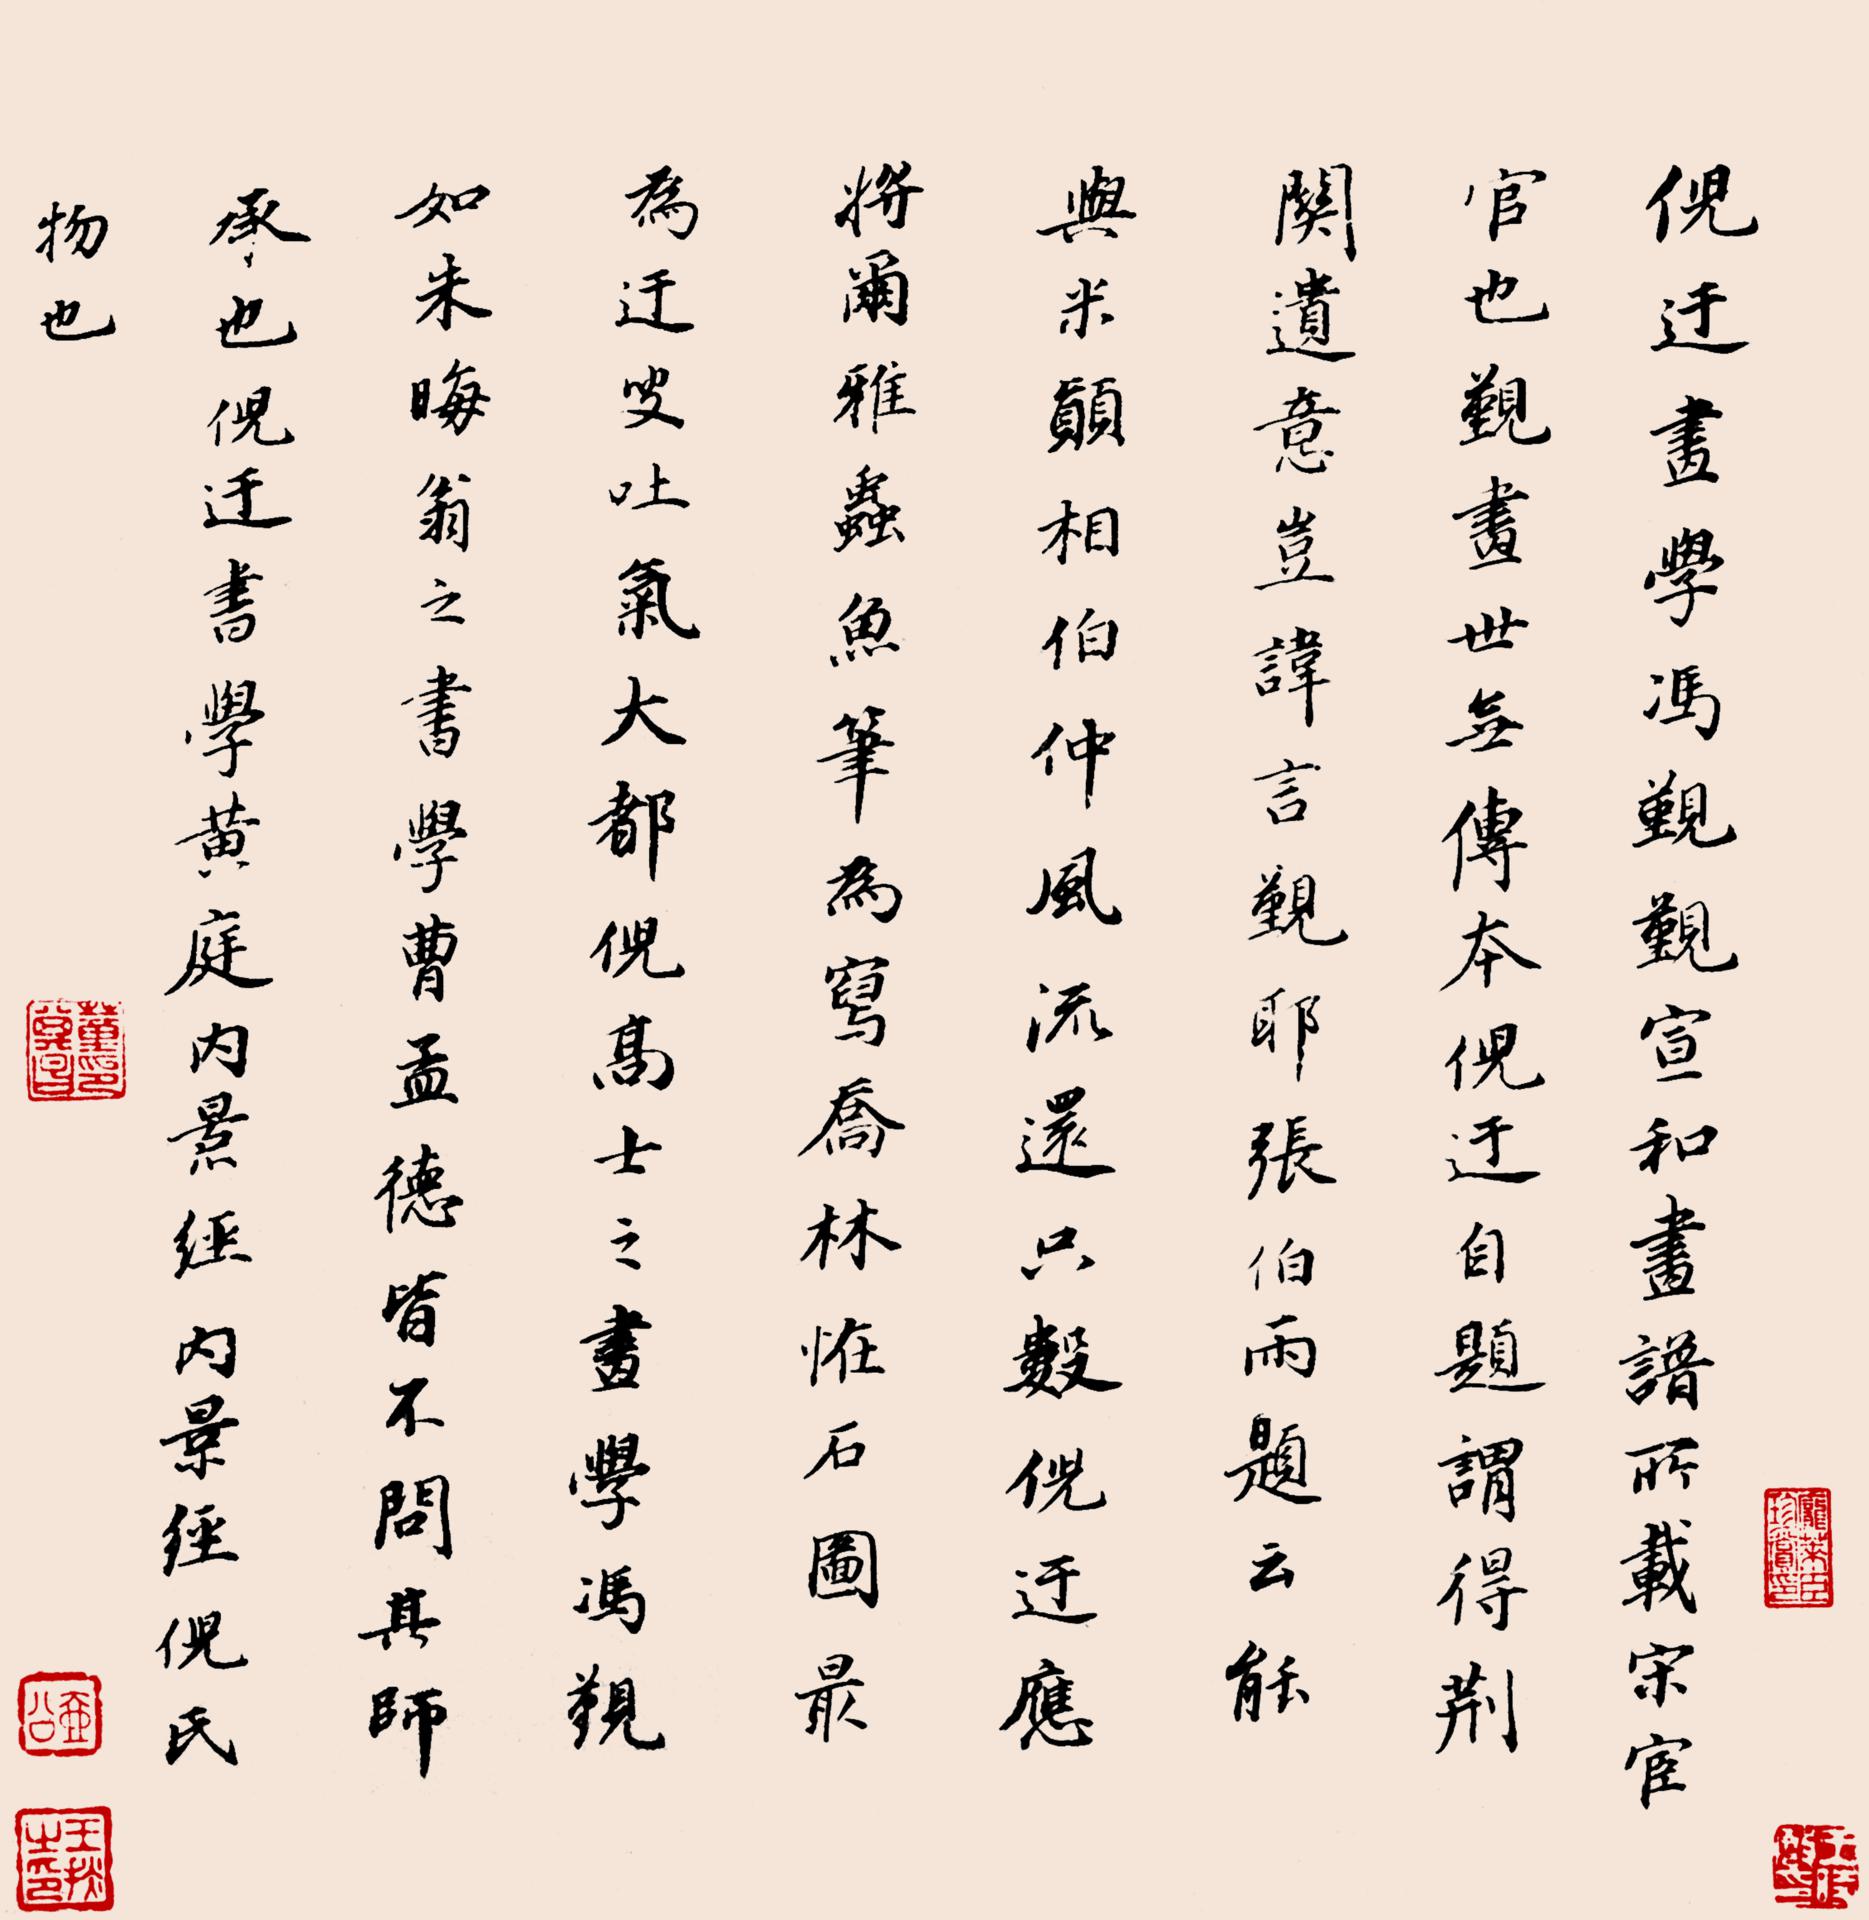 倪迂畫學馮覲覲宣和畫譜所載宋宦
官也覲畫世無傳本倪迂自題謂得荆
關遺意豈諱言覲耶張伯雨題云能
與米顛相伯仲風流還只數倪迂應
將爾雅蟲魚筆為寫喬林恠石圖最
為迂叟吐氣大都倪高士之畫學馮覲
如朱晦翁之書學曹孟德皆不問其師
承也倪迂書學黄庭内景經内景經倪氏
物也